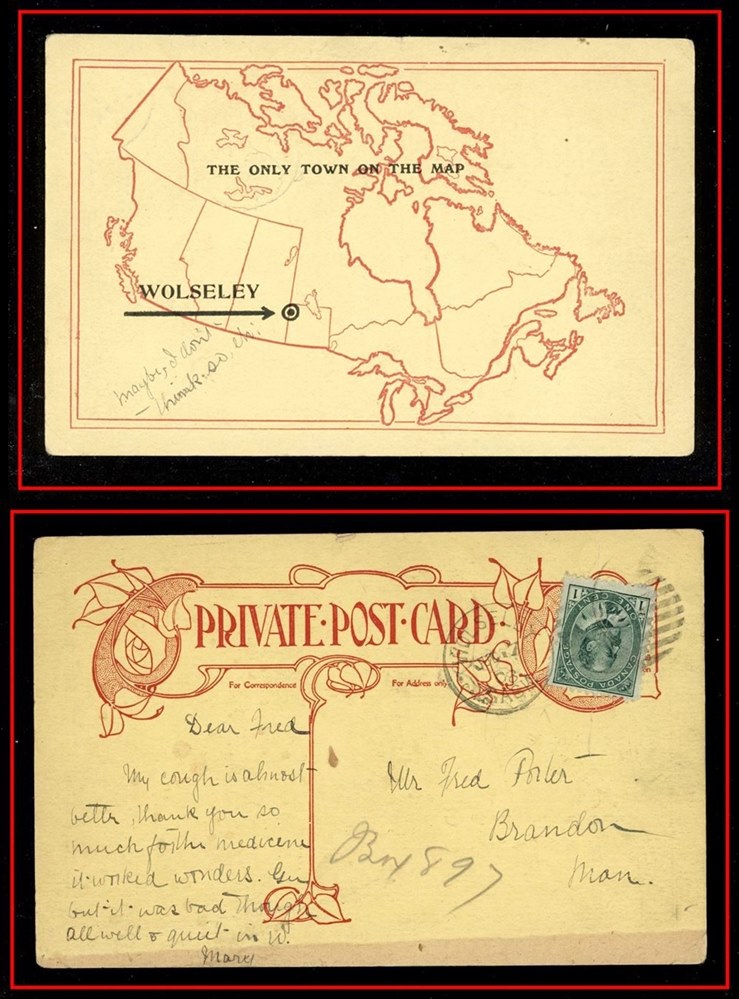 THE ONLY TOWN ON THE MAP
WOLSELEY
maybe, I don't
– think so, eh!
PRIVATE·POST·CARD·
For Correspondence
For Address only
1 1
ONE CENT
CANADA POSTAGE
Dear Fred
My cough is almost
better, thank you so
much for the medecene
it worked wonders. Gee
but it was bad though
all well & quiet in W.
Mary
Mr Fred Porter
Brandon
Man.
Box 897